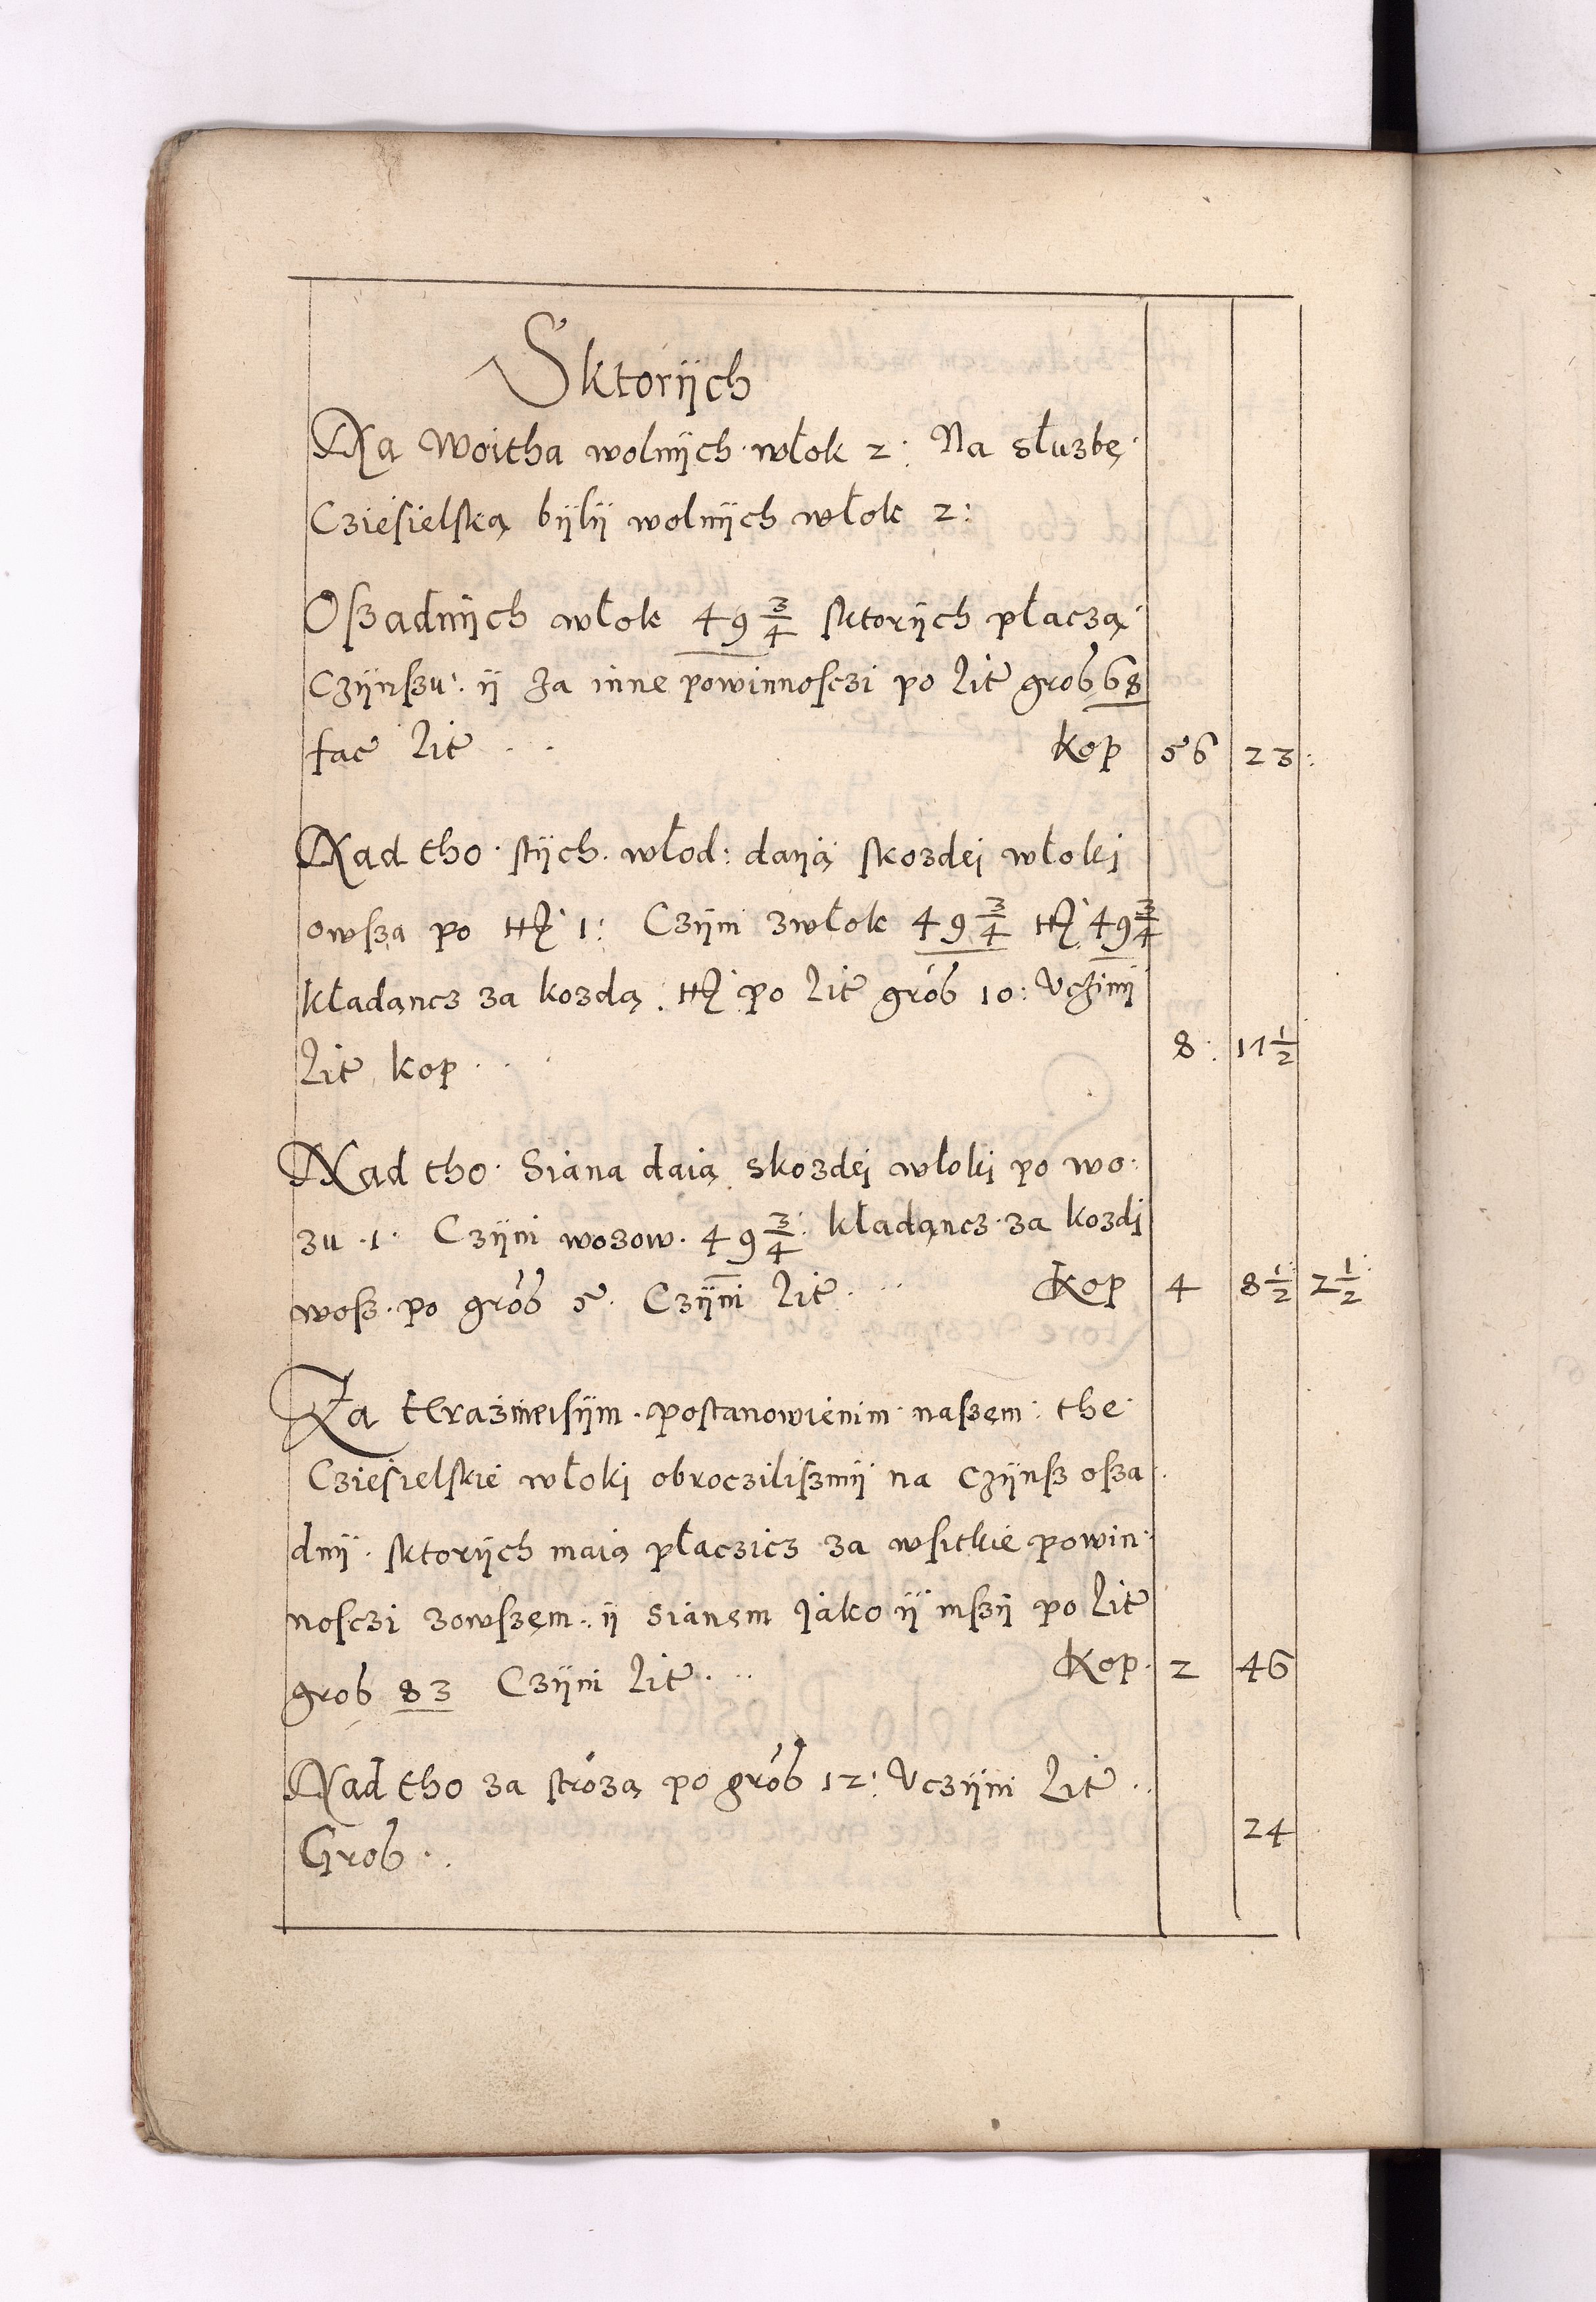 Sktorijch
Na Woitha wolnijch włok 2: Na służbę
Cziesielską bijlij wolnijch włok 2:
Oszadnijch włok 49 3/4 sktorijch płaczą
Czijnszu ij za inne powinnosczi po lit grosz 68
fac lit kop 56 23
Nad tho stijch włok: daiją skozdej włokj
owsza po 1: Czijni zwłok 49 3/4 49 3/4
kładąncz za kozdą po lit grosz 10: Vczijnij
lit kop 8: 17 1/2
Nad tho Siana daią skozdej włokj po wo
zu 1 Czijni wozow 49 3/4 kładąncz za kozdj
wosz po grosz 5 Czijni lit Kop 4 8 1/2 2 1/2
Za teraznieisijm postanowienim naszem the
Cziesielskie włokj obrocziliszmij na Czijnsz osza
dnij sktorijch maią płaczicz za wsitkie powin
nosczi zowszem ij sianem jako ij inszij po lit
grosz 83 Czijni lit Kop 2 46
Nad tho za stróżą po grosz 12: Vczijni lit
Grosz 24